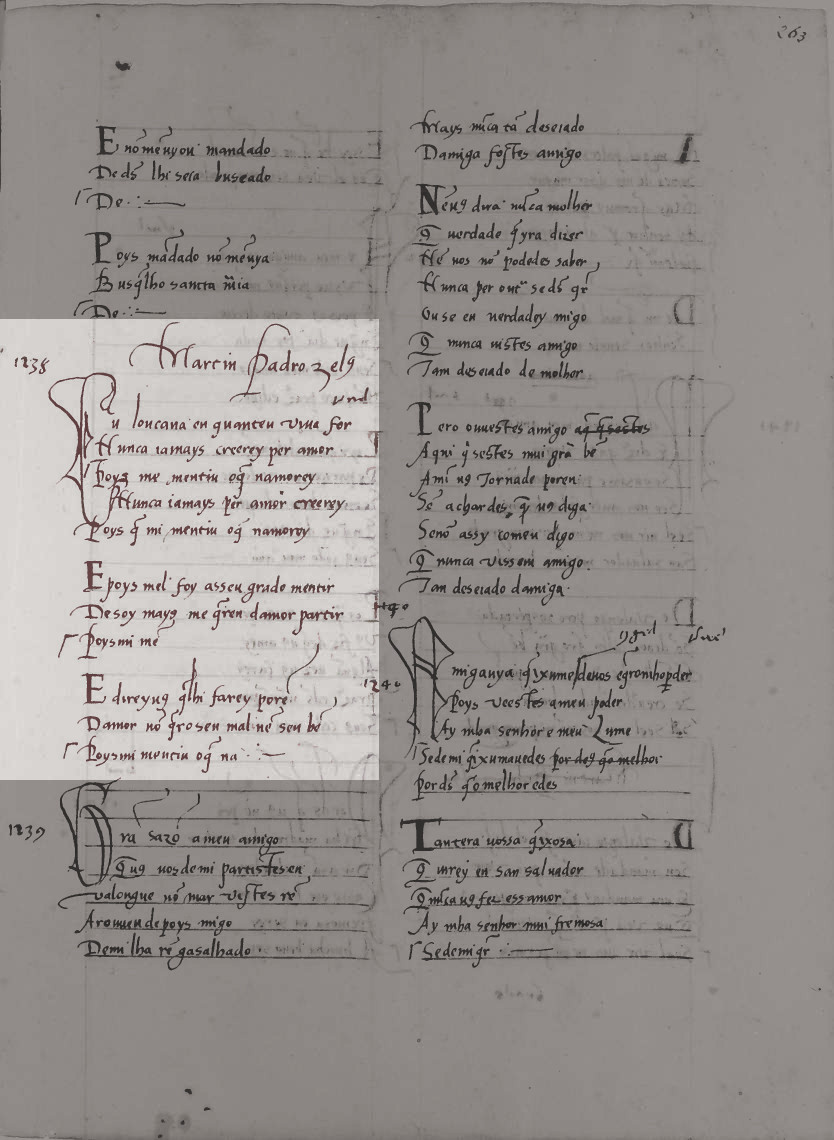 263
E nō mē uyou mandado
De ds̄ lhi seia buscado
De
Poys mādado nō mē uya
Busq̄lho sancta m̄ia
De
Martin Padrozelꝯ
1238
Fu loucana en quanteu viva for
Nunca iamays creerey per amor
Poys me mentiu o q̄ namorey
Nunca iamays per amor creerey
Poys q̄ mi mentiu o q̄ namorey
E poys mel foy a sseu grado mentir
De soy mays me q̄ren damor partir
Poys mi mē
E direy uꝯ q̄lhi farey porē
Damor nō q̄ro seu mal nē seu bē
Poys mi mentiu o q̄ na
1239
Gra sazō a meu amigo
Q̄ uꝯ uos de mi partistes en
valongue nō mar vistes rē
Ar ouuen depoys migo
Demi lha rē gasalhado
Mays nūca tā deseiado
Damiga fostes amigo
Nē uꝯ dira nūca molher
Q̄ uerdade q̄yra dizer
Nē uos nō podedes saber
Nunca per outr se ds̄ q̄r
Ou se en uerdadey migo
Q̄ nunca uistes amigo
Tam deseiado de molher
Pero ouuestes amigo aq̄ q̄sestes
Aqui q̄sestes mui grā bē
A mī uꝯ tornade poren
Se achardes q̄ uꝯ diga
Senō assy comeu digo
Q̄ nunca vissem amigo
Tan deseiado damiga
1240
1240
Amiga uya q̄ixumo de uos
Poys veestes a meu poder
Ay mha senhor e meu lume
Se de mi q̄ixum auedes por deꝯ q̄ o melhor
Por ds̄ q̄ o melhoredes
Tantera uossa q̄ixosa
Q̄ uirey en san saluador
Q̄ nūca uꝯ fez ess amor
Ay mha senhor mui fremosa
Se de mi q̄r